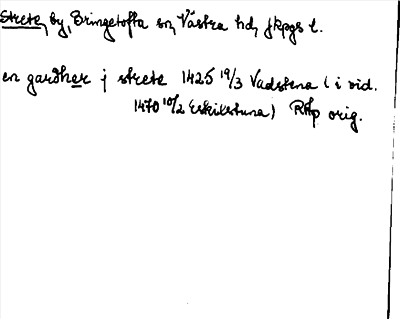 Strete, by, Bringetofta sn, Västra hd, Jkpgs l.
en gardher j strete 1425 19/3 Vadstena ( i vid.
1470 10/2 Eskilstuna) RAp orig.